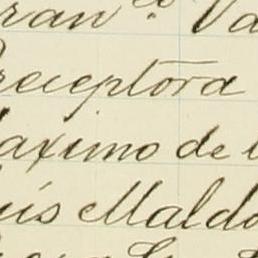 ran.co Va
receptora
aximo de l
uis Maldo